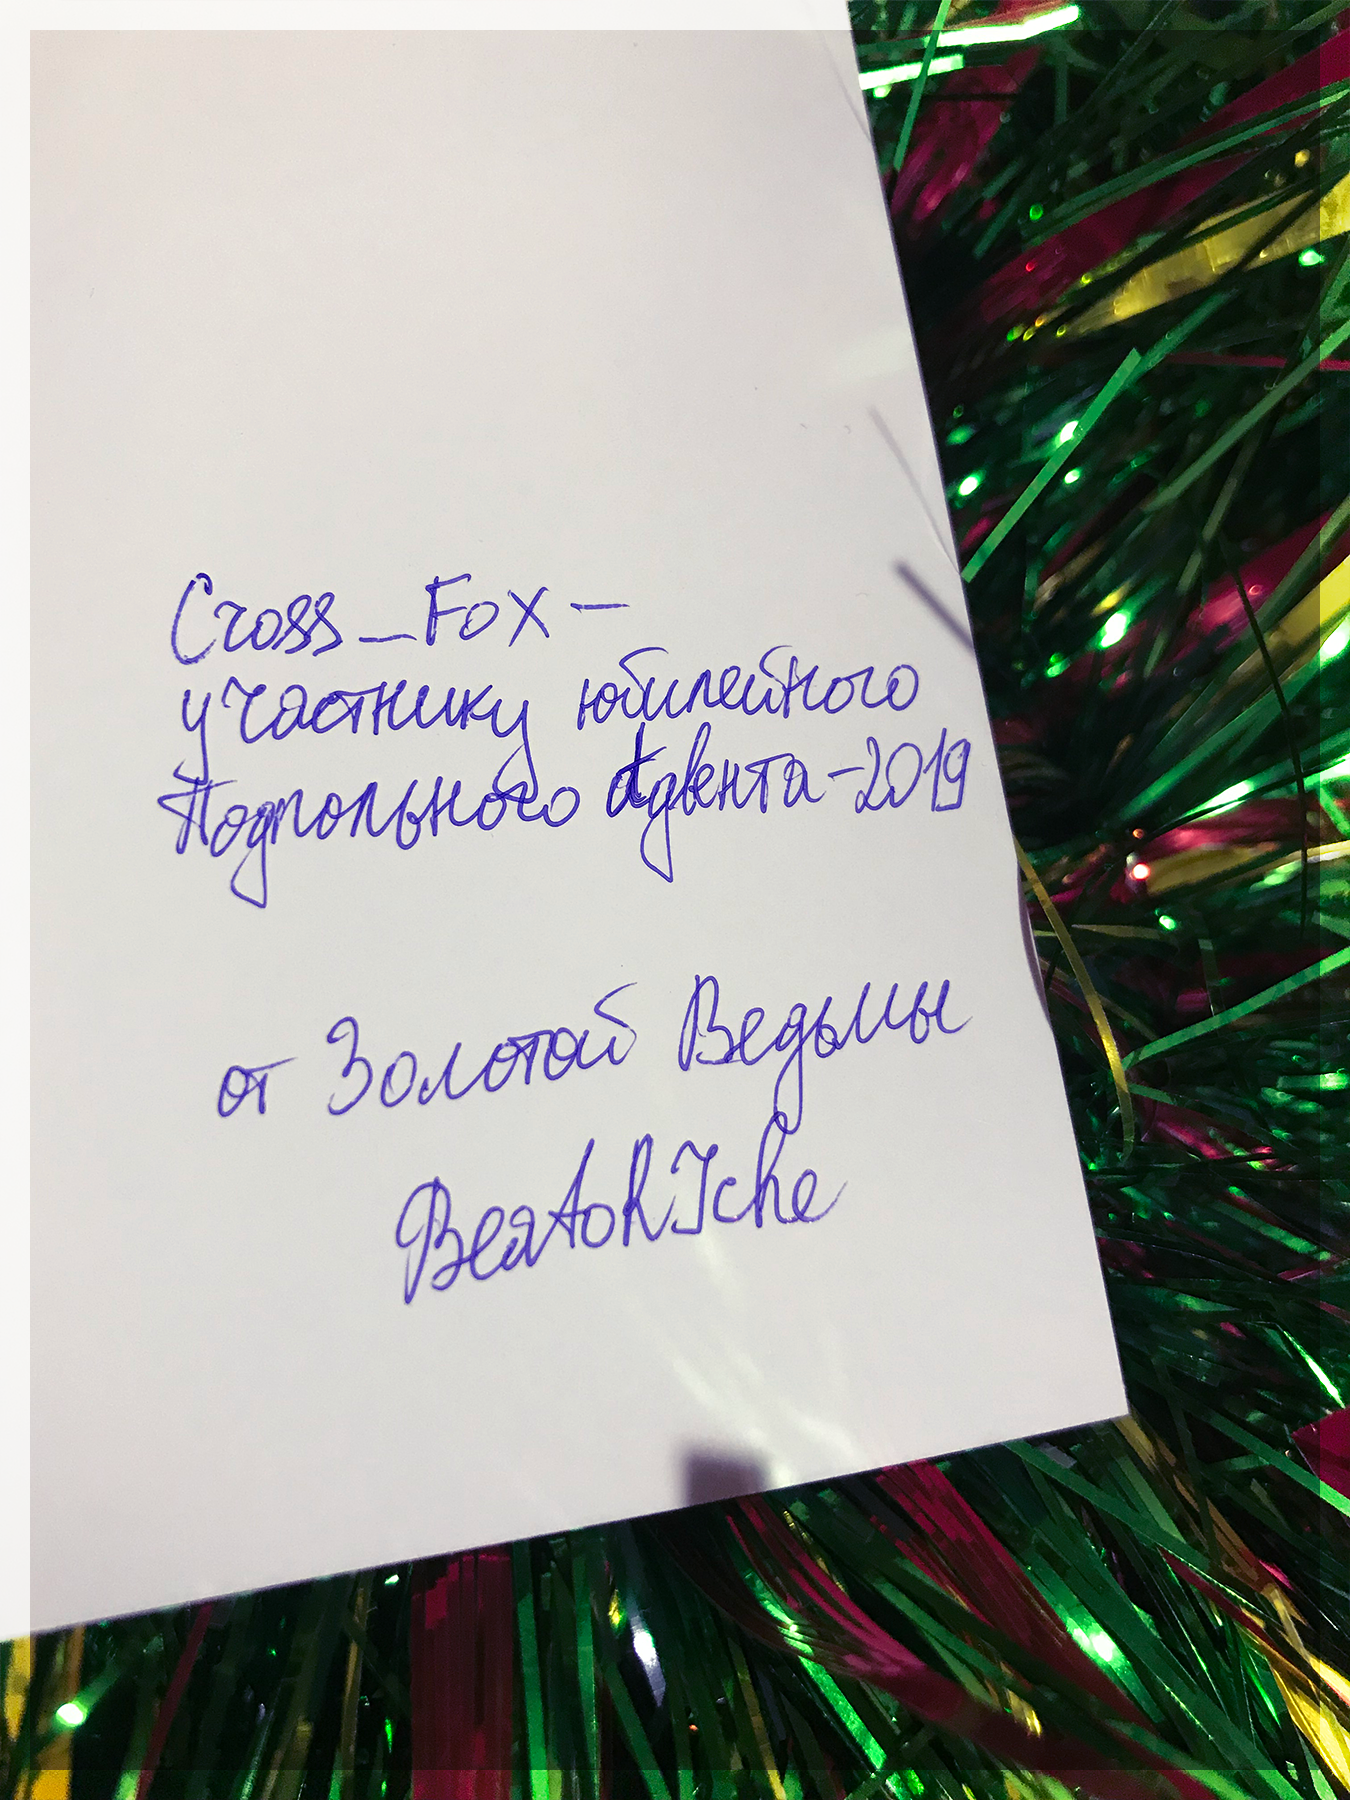 Cross_Fox –
участнику юбилейного
Подпольного Адвента-2019
от Золотой Ведьмы
BeatoRIche